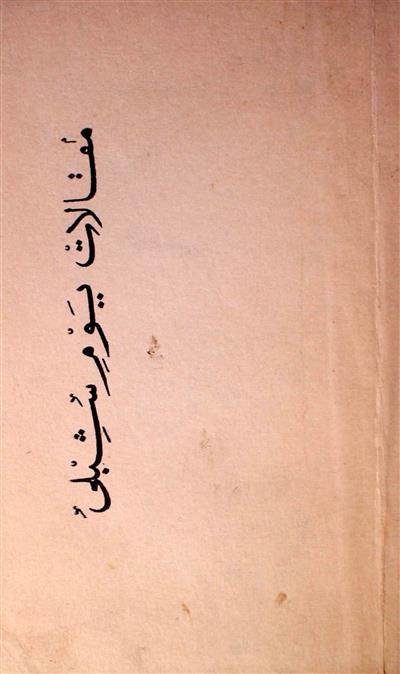 مقالات یومِ شبلی